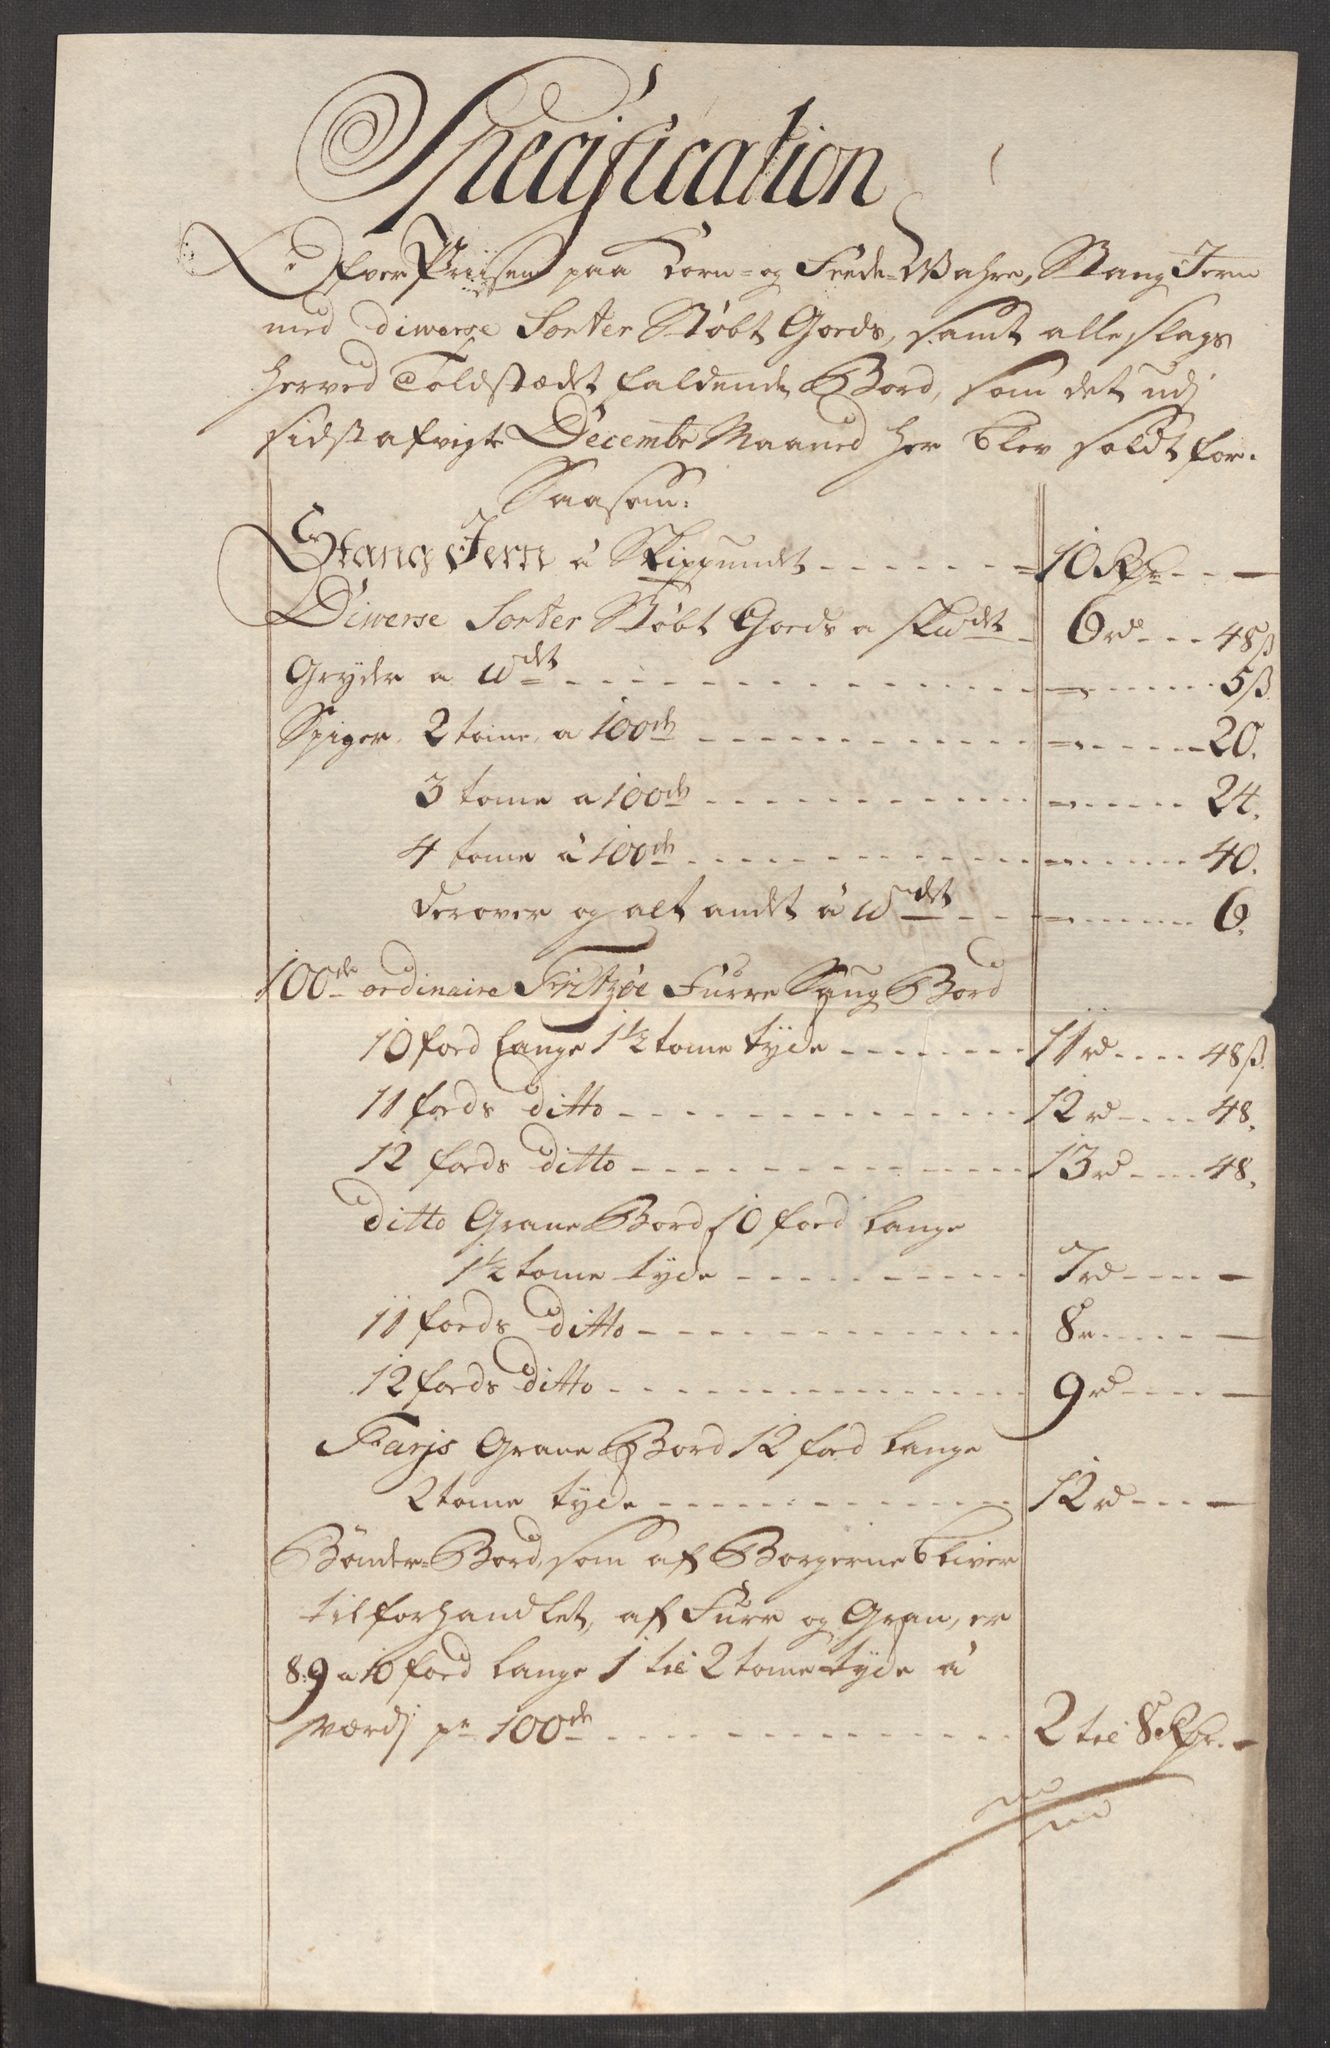 Specification
Ofver Priisen paa Korn- og Feede-Wahre, Stang Jern
med diverse Sorter Støbt Goeds, samt alle slags
herved Toldstædet faldende Bord, som det udj
sidst afvigte Decembr Maaned her blev soldt for.
Saasom:
Stang Jern á Skippundet - - - - - - 10 Rdr - - -
Diverse Sorter Støbt Goeds a sk℔det - 6 rd - - - 48 ß
Gryder a ℔det - - - - - - 5 ß.
Spiger. 2 tome a 100de - - - - - - 20.
3 tome a 100de - - - - - - 24.
4 tome á 100de - - - - - - 40.
derover og alt andet á ℔det - - - - - - 6.
100de ordinaire Fritzøe Furre Saug Bord
10 foed lange 1 1/2 tome tycke - - - - - - 11 rd - - - 48 ß.
11 foeds ditto - - - - - - 12 rd - - - 48.
12 foeds ditto - - - - - - 13 rd - - - 48.
ditto Grane Bord 10 foed lange
1 1/2 tome tycke - - - - - - 7 rd - - - -
11 foeds ditto - - - - - - 8 r - - - -
12 foeds ditto - - - - - - 9 rd - - - -
Farjs Grane Bord 12 foed lange
2 tome tycke - - - - - - 12 rd - - - -
Bønder-Bord, som af Borgerne bliver
tilforhandlet, af Furr og Gran, er
8. 9 a 10 foed lange 1 til 2 tome tycke á
værdj pr 100de - - - - - - 2 til 8 Rdr. -